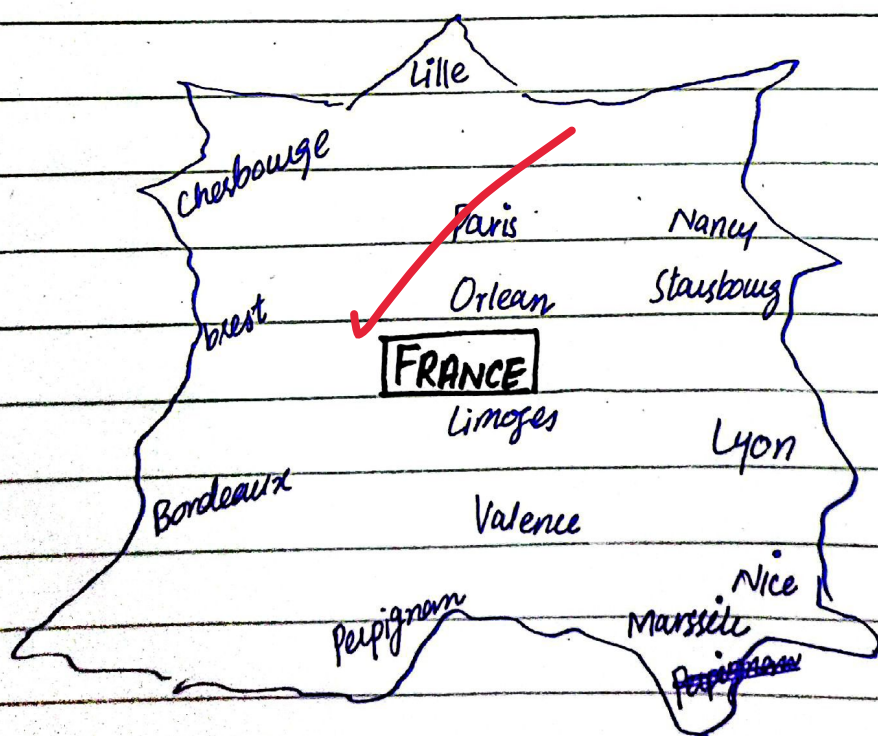 Lille
Cherbourge
Paris
Nancy
Orlean
Stausbourg
brest
FRANCE
Limoges
Lyon
Bordeaux
Valence
Nice
Perpignan
Marssile